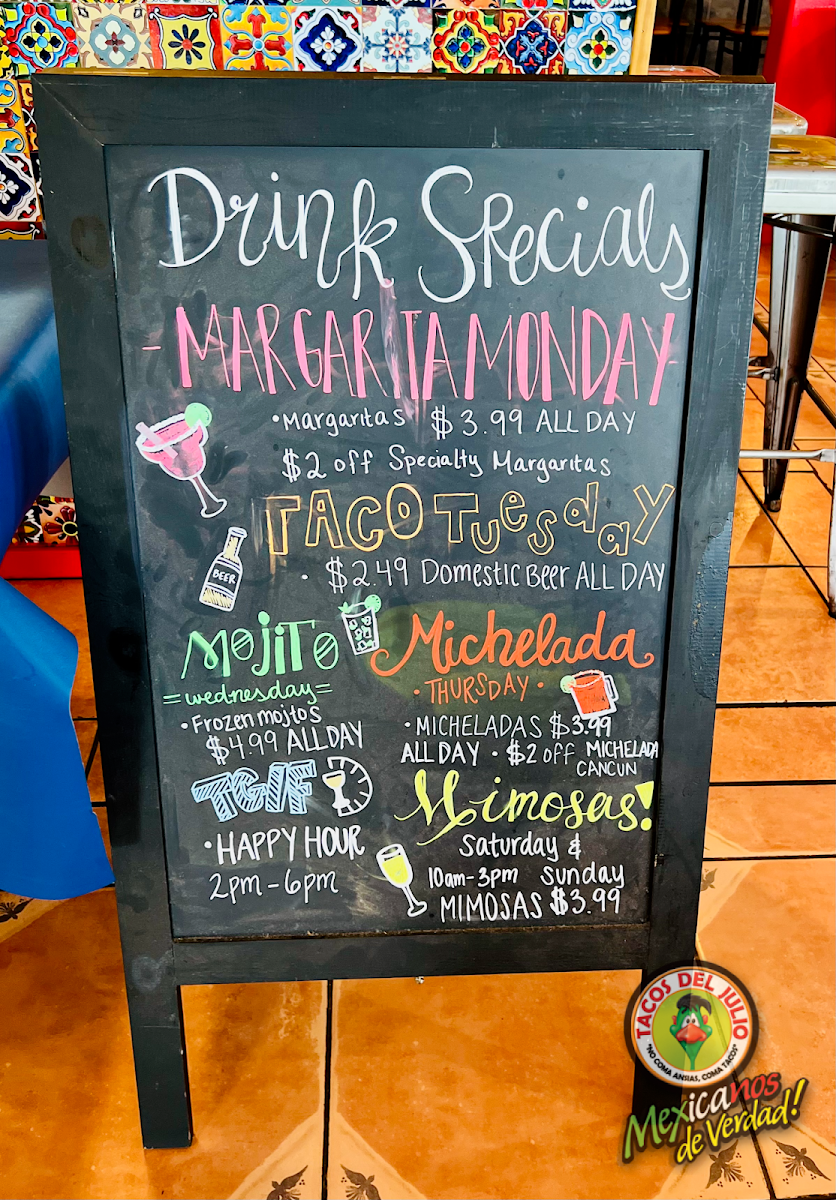 Drink Specials
- MARGARITA MONDAY -
• Margaritas $3.99 ALL DAY
$2 off Specialty Margaritas
TACO Tuesday
BEER
• $2.49 Domestic Beer ALL DAY
Mojito
= wednesday =
• Frozen mojtos
$4.99 ALL DAY
Michelada
• THURSDAY •
• MICHELADAS $3.99
ALL DAY • $2 off MICHELADA
CANCUN
TGIF
• HAPPY HOUR
2pm - 6pm
Mimosas!
Saturday &
10am-3pm Sunday
MIMOSAS $3.99
TACOS DEL JULIO
"NO COMA ANSIAS, COMA TACOS"
Mexicanos
de Verdad!